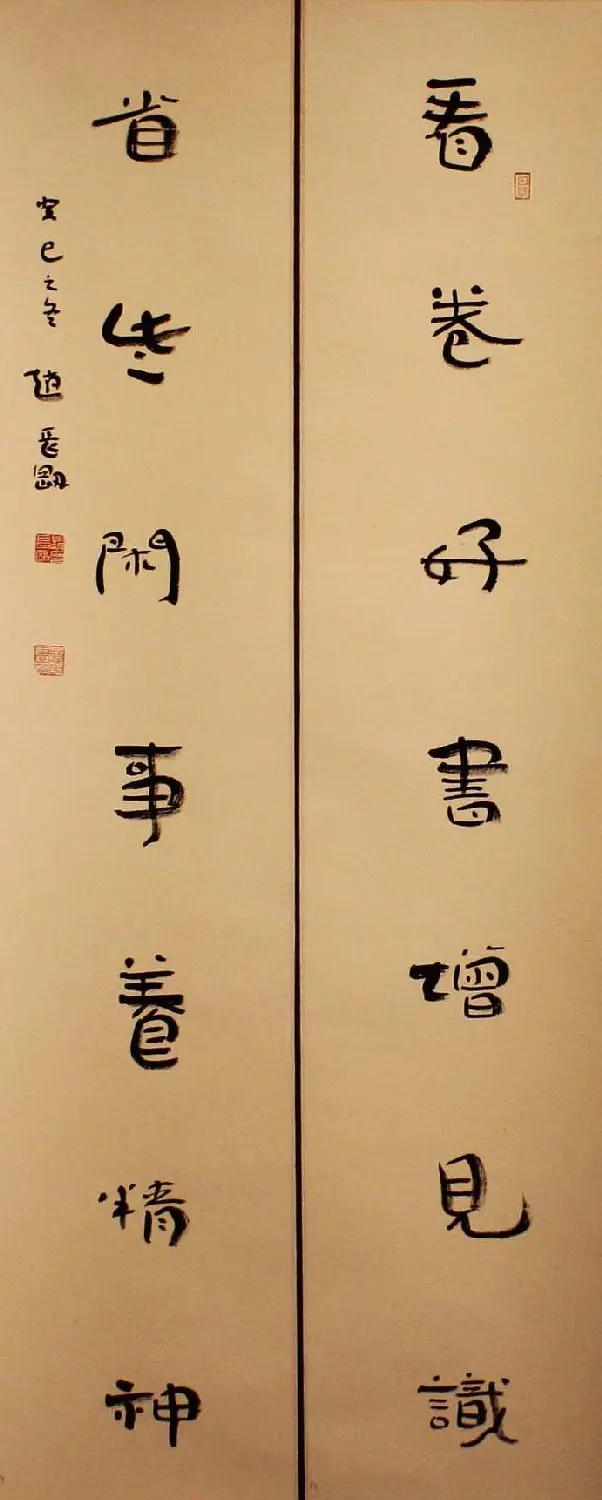 看卷好書增見識
省些閑事養精神
癸巳之冬趙長剛